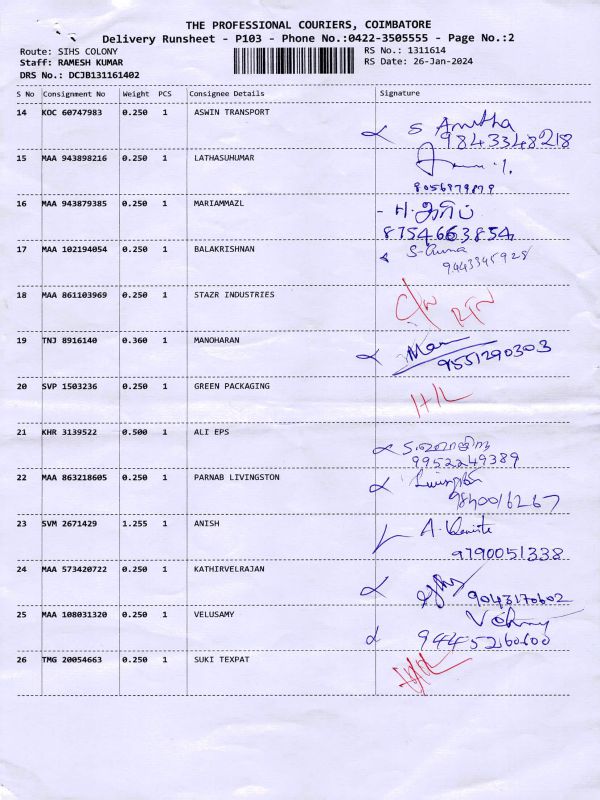 THE PROFESSIONAL COURIERS, COIMBATORE
Delivery Runsheet - P103 - Phone No.:0422-3505555 - Page No.:2
Route: SIHS COLONY
RS No.: 1311614
Staff: RAMESH KUMAR
RS Date: 26-Jan-2024
DRS No.: DCJB131161402
S No Consignment No Weight PCS Consignee Details Signature
14 KOC 60747983 0.250 1 ASWIN TRANSPORT S Anitha
9843348218
15 MAA 943898216 0.250 1 LATHASUHUMAR
8056879879
16 MAA 943879385 0.250 1 MARIAMMAZL
8754663854
17 MAA 102194054 0.250 1 BALAKRISHNAN
9443345928
18 MAA 861103969 0.250 1 STAZR INDUSTRIES RTN
19 TNJ 8916140 0.360 1 MANOHARAN
9551290303
20 SVP 1503236 0.250 1 GREEN PACKAGING
21 KHR 3139522 0.500 1 ALI EPS
9952249389
22 MAA 863218605 0.250 1 PARNAB LIVINGSTON
9840016267
23 SVM 2671429 1.255 1 ANISH
9790051338
24 MAA 573420722 0.250 1 KATHIRVELRAJAN
9043170602
25 MAA 108031320 0.250 1 VELUSAMY
9445260600
26 TMG 20054663 0.250 1 SUKI TEXPAT